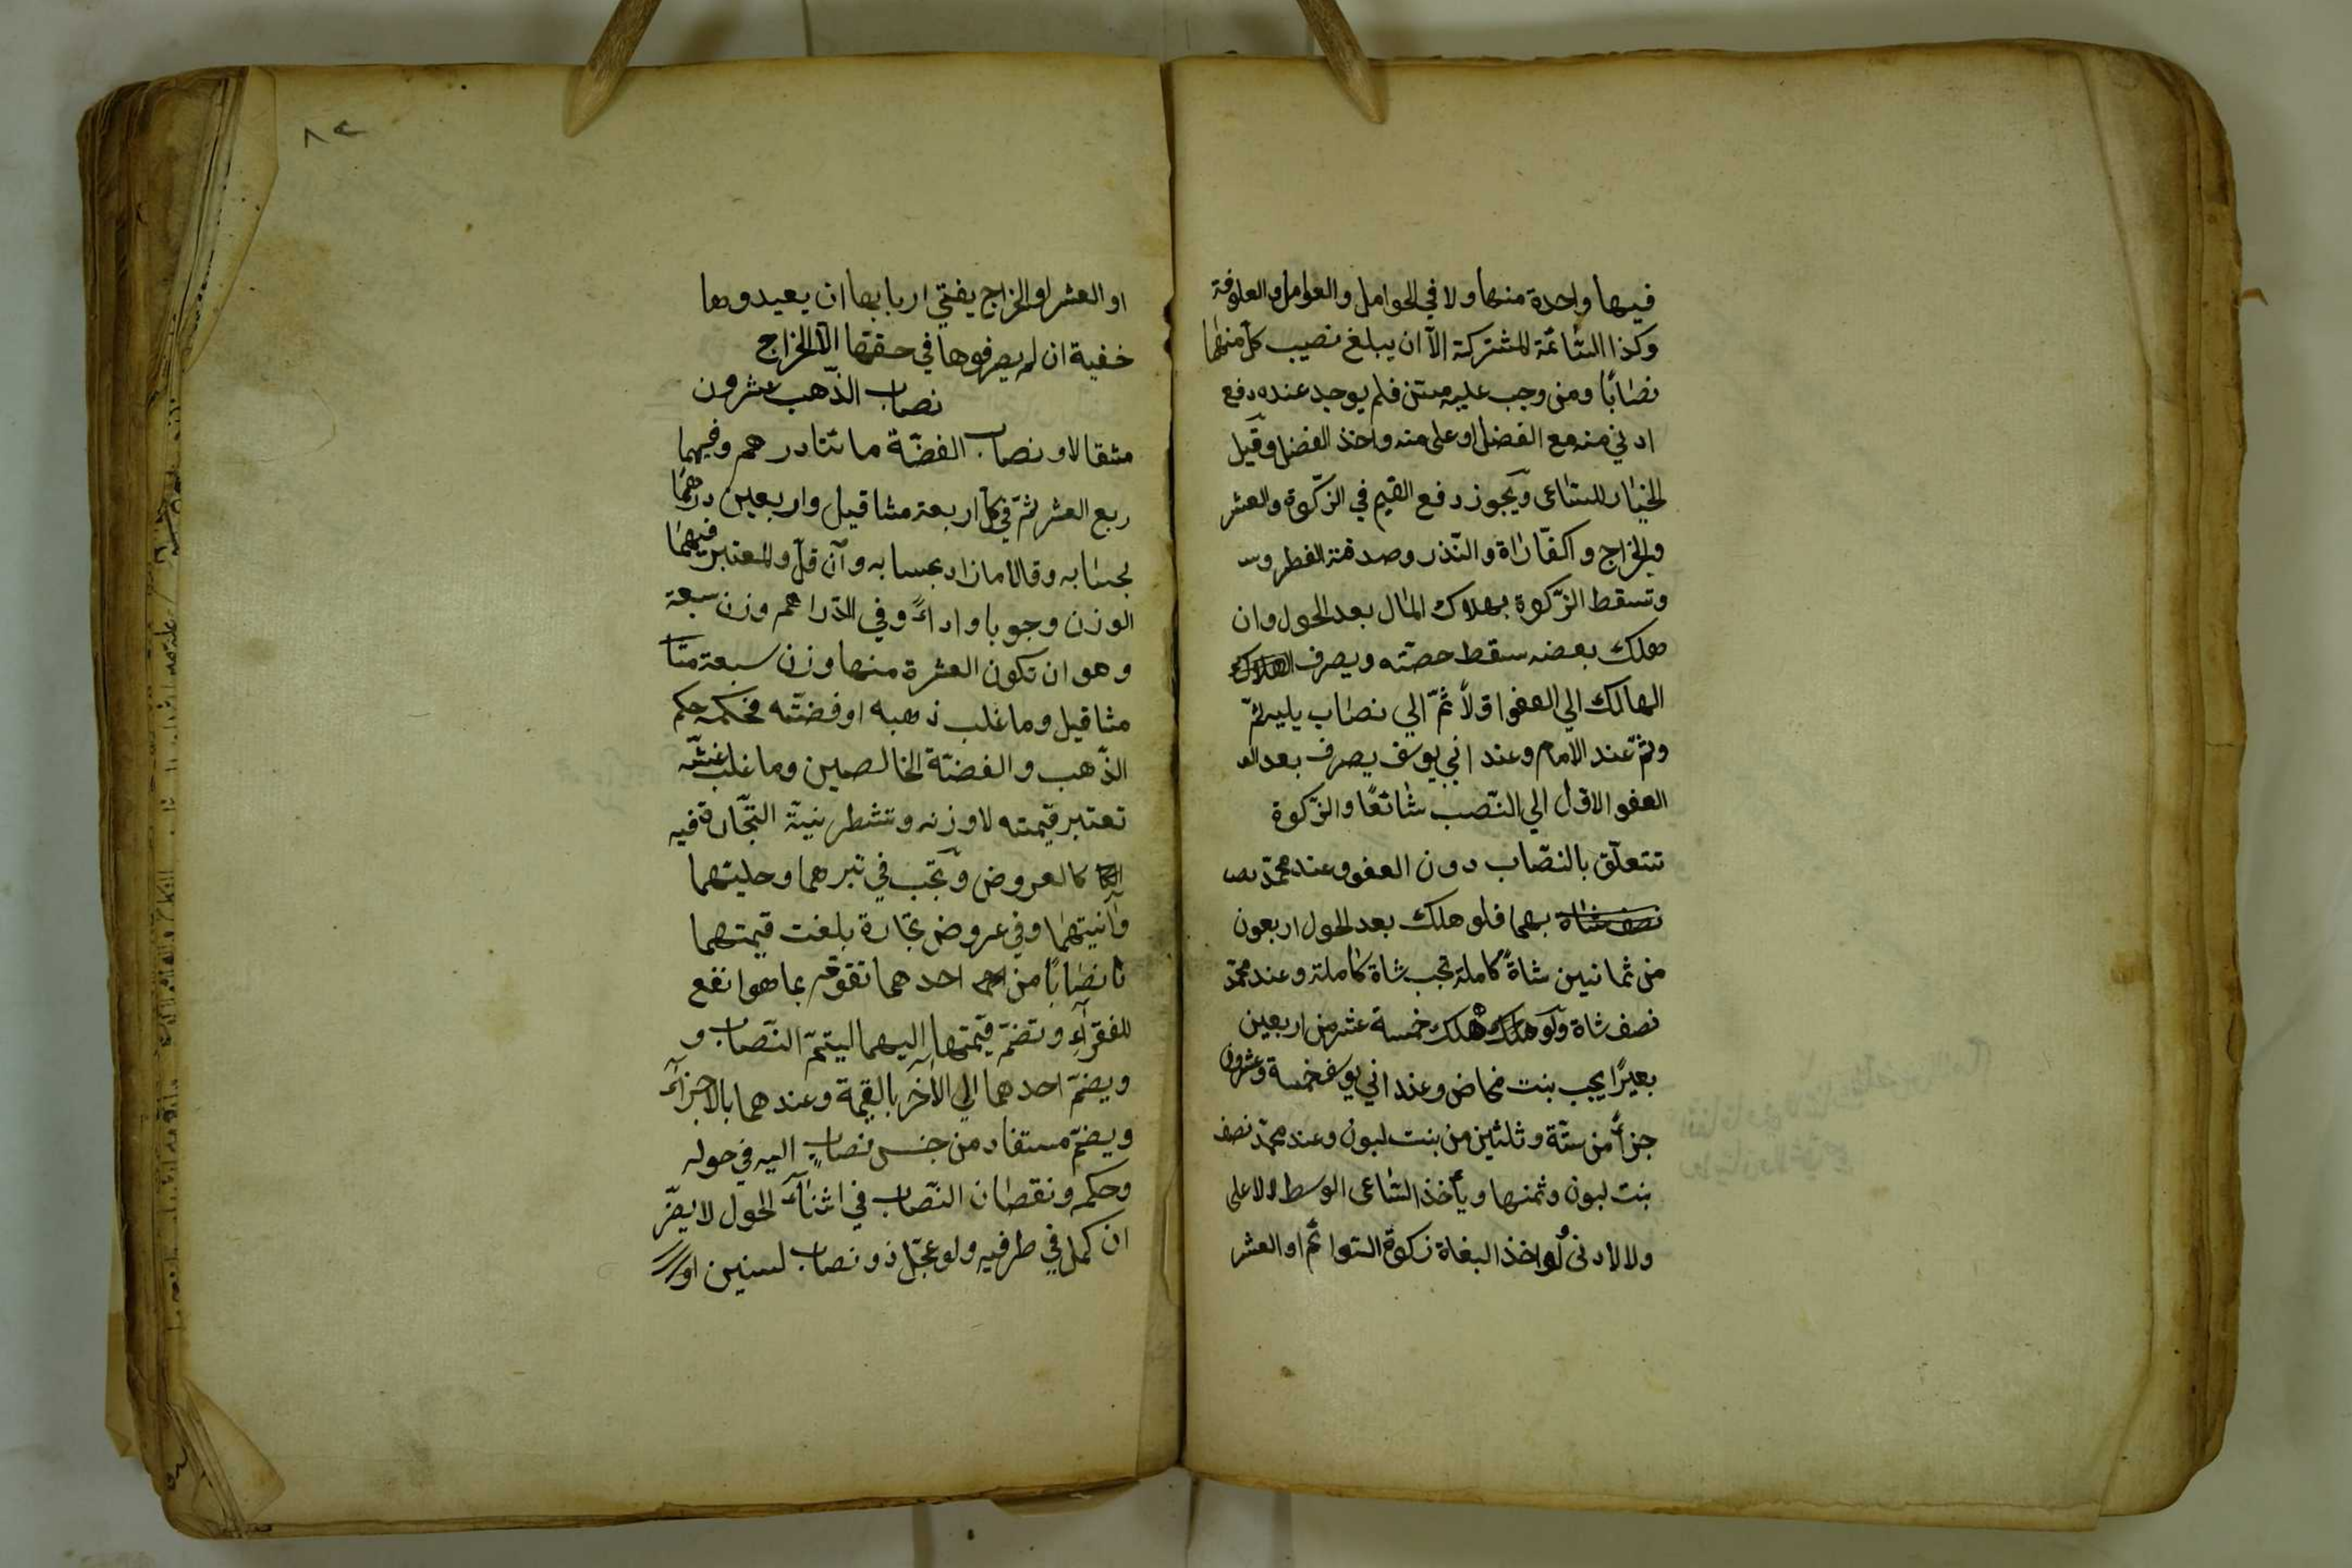 فيها واحدة منها ولا في الحوامل والعوامل والعلوفة
وكذا السّائمة المشتركة الاّ ان يبلغ نصيب كل منهما
نصابًا ومن وجب عليه مسن فلم يوجد عنده دفع
ادني منه مع الفضل او على منه واخذ الفضل وقيل
الخيار للساعى ويجوز دفع القيم في الزّكوة والعشر
والخراج واكفّاراة والنّذر وصدقة الفطر
وتسقط الزّكوة بهلاك المال بعد الحول وان
هلك بعضه سقط حصّته ويصرف الهلاك
الهالك الي العفو اوّلاً ثمّ الي نصاب يليه ثمّ
وثمّ عند الامام وعند ابي يوسف يصرف بعد الع
العفو الاوّل الي النّصب شائعًا والزّكوة
تتعلّق بالنّصاب دون العفو وعند محمّد
نصف شاة بهما فلو هلك بعد الحول اربعون
من ثمانين شاةً كاملة تجب شاة كاملة وعند محمّد
نصف شاة ولو هلك هلك خمسة عشر من اربعين
بعيرًا يجب بنت مخاض وعند ابي يوسف خمسة وعشرون
جزأً من ستّة وثلثين من بنت لبون وعند محمّد نصف
بنت لبون وثمنها ويأخذ السّاعى الوسط لا الاعلى
ولا الادنى ولو اخذ البغاة زكوة السّوائم او العشر
٨٢
او العشر او الخراج يفتي اربابها ان يعيدوها
خفية ان لم يصرفوها في حقّها الاّ الخراج
نصاب الذّهب عشرون
مثقالا ونصاب الفضّة مائتا درهم وفيهما
ربع العشر ثمّ في كل اربعة مثاقيل واربعين درهما
بحسابه وقالا ما زاد بحسابه وان قلّ والمعتبر فيهما
الوزن وجوبا واداءً وفي الدّراهم وزن سبعة
وهو ان تكون العشرة منها وزن سبعة مثا
مثاقيل وما غلب ذهبه او فضّته فحكمه حكم
الذّهب والفضّة الخالصين وما غلب غشّه
تعتبر قيمته لا وزنه وتشطر نيّة التّجارة فيه
كالعروض وتجب في تبرهما وحليتهما
وآنيتهما وفي عروض تجارة بلغت قيمتهما
نصابًا من احد احدهما تقوّم بما هو انفع
للفقرآء وتضمّ قيمتها اليهما ليتمّ النّصاب و
ويضمّ احدهما الي الآخر بالقيمة وعندهما بالاجزآء
ويضمّ مستفاد من جنس نصابٍ اليه في حوله
وحكمه ونقصان النّصاب في اثناء الحول لا يضرّ
ان كمل في طرفيه ولو عجّل ذو نصاب لسنين او